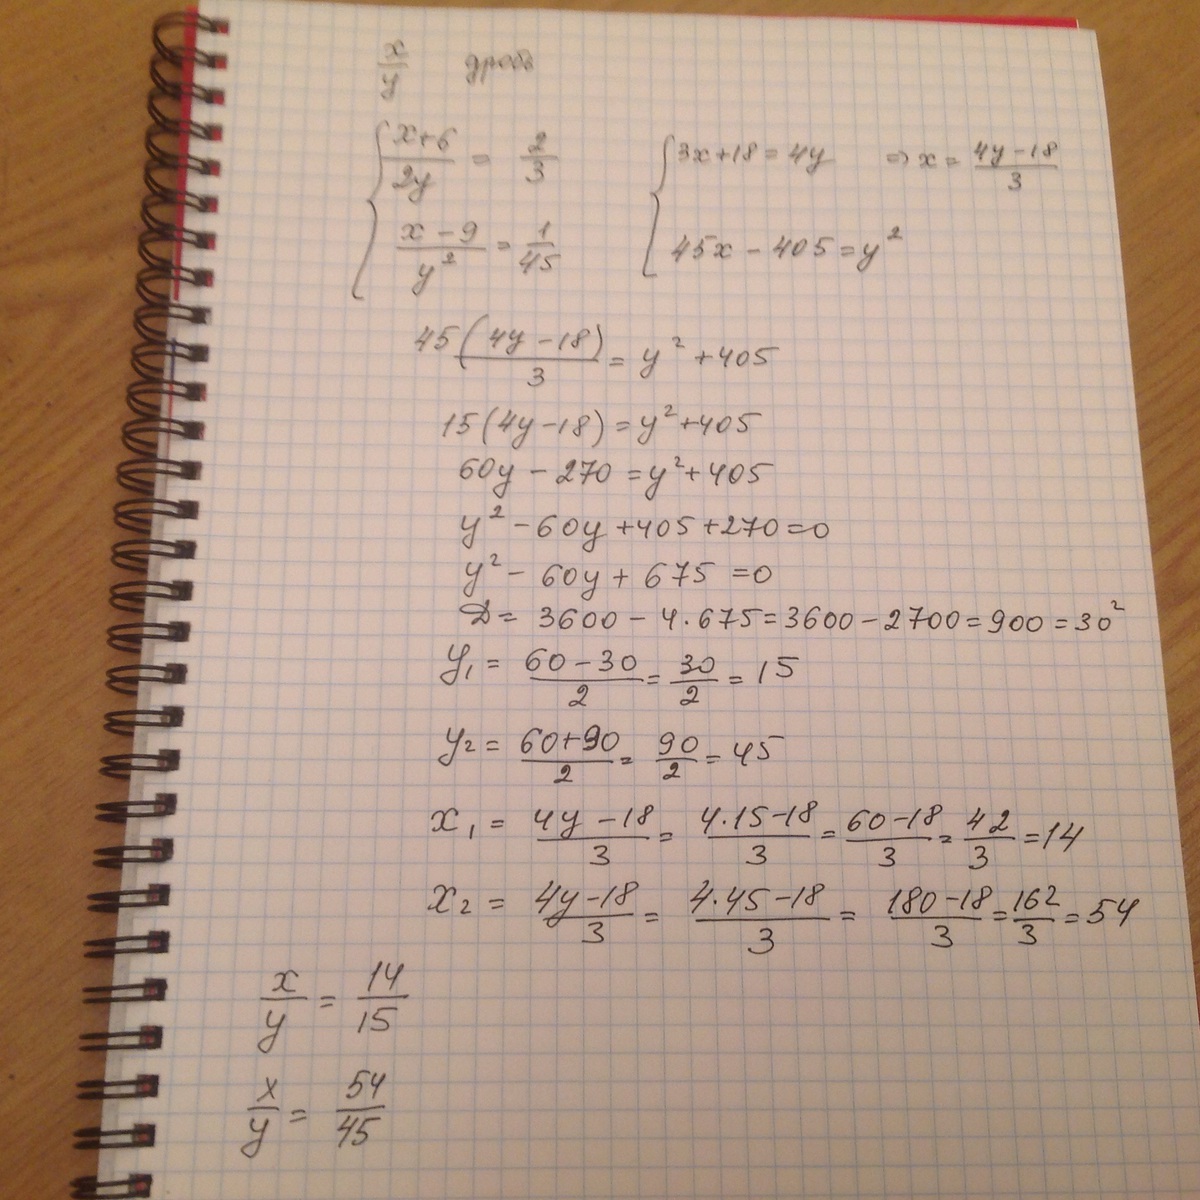 x/y дробь
{ (x+6)/2y = 2/3 { 3x+18 = 4y ⇒ x = (4y-18)/3
(x-9)/y² = 1/45 45x - 405 = y²
45(4y-18)/3 = y² + 405
15(4y-18) = y²+405
60y - 270 = y²+405
y² - 60y + 405 + 270 = 0
y² - 60y + 675 = 0
D = 3600 - 4·675 = 3600 - 2700 = 900 = 30²
y₁ = (60-30)/2 = 30/2 = 15
y₂ = (60+90)/2 = 90/2 = 45
x₁ = (4y-18)/3 = (4·15-18)/3 = (60-18)/3 = 42/3 = 14
x₂ = (4y-18)/3 = (4·45-18)/3 = (180-18)/3 = 162/3 = 54
x/y = 14/15
x/y = 54/45